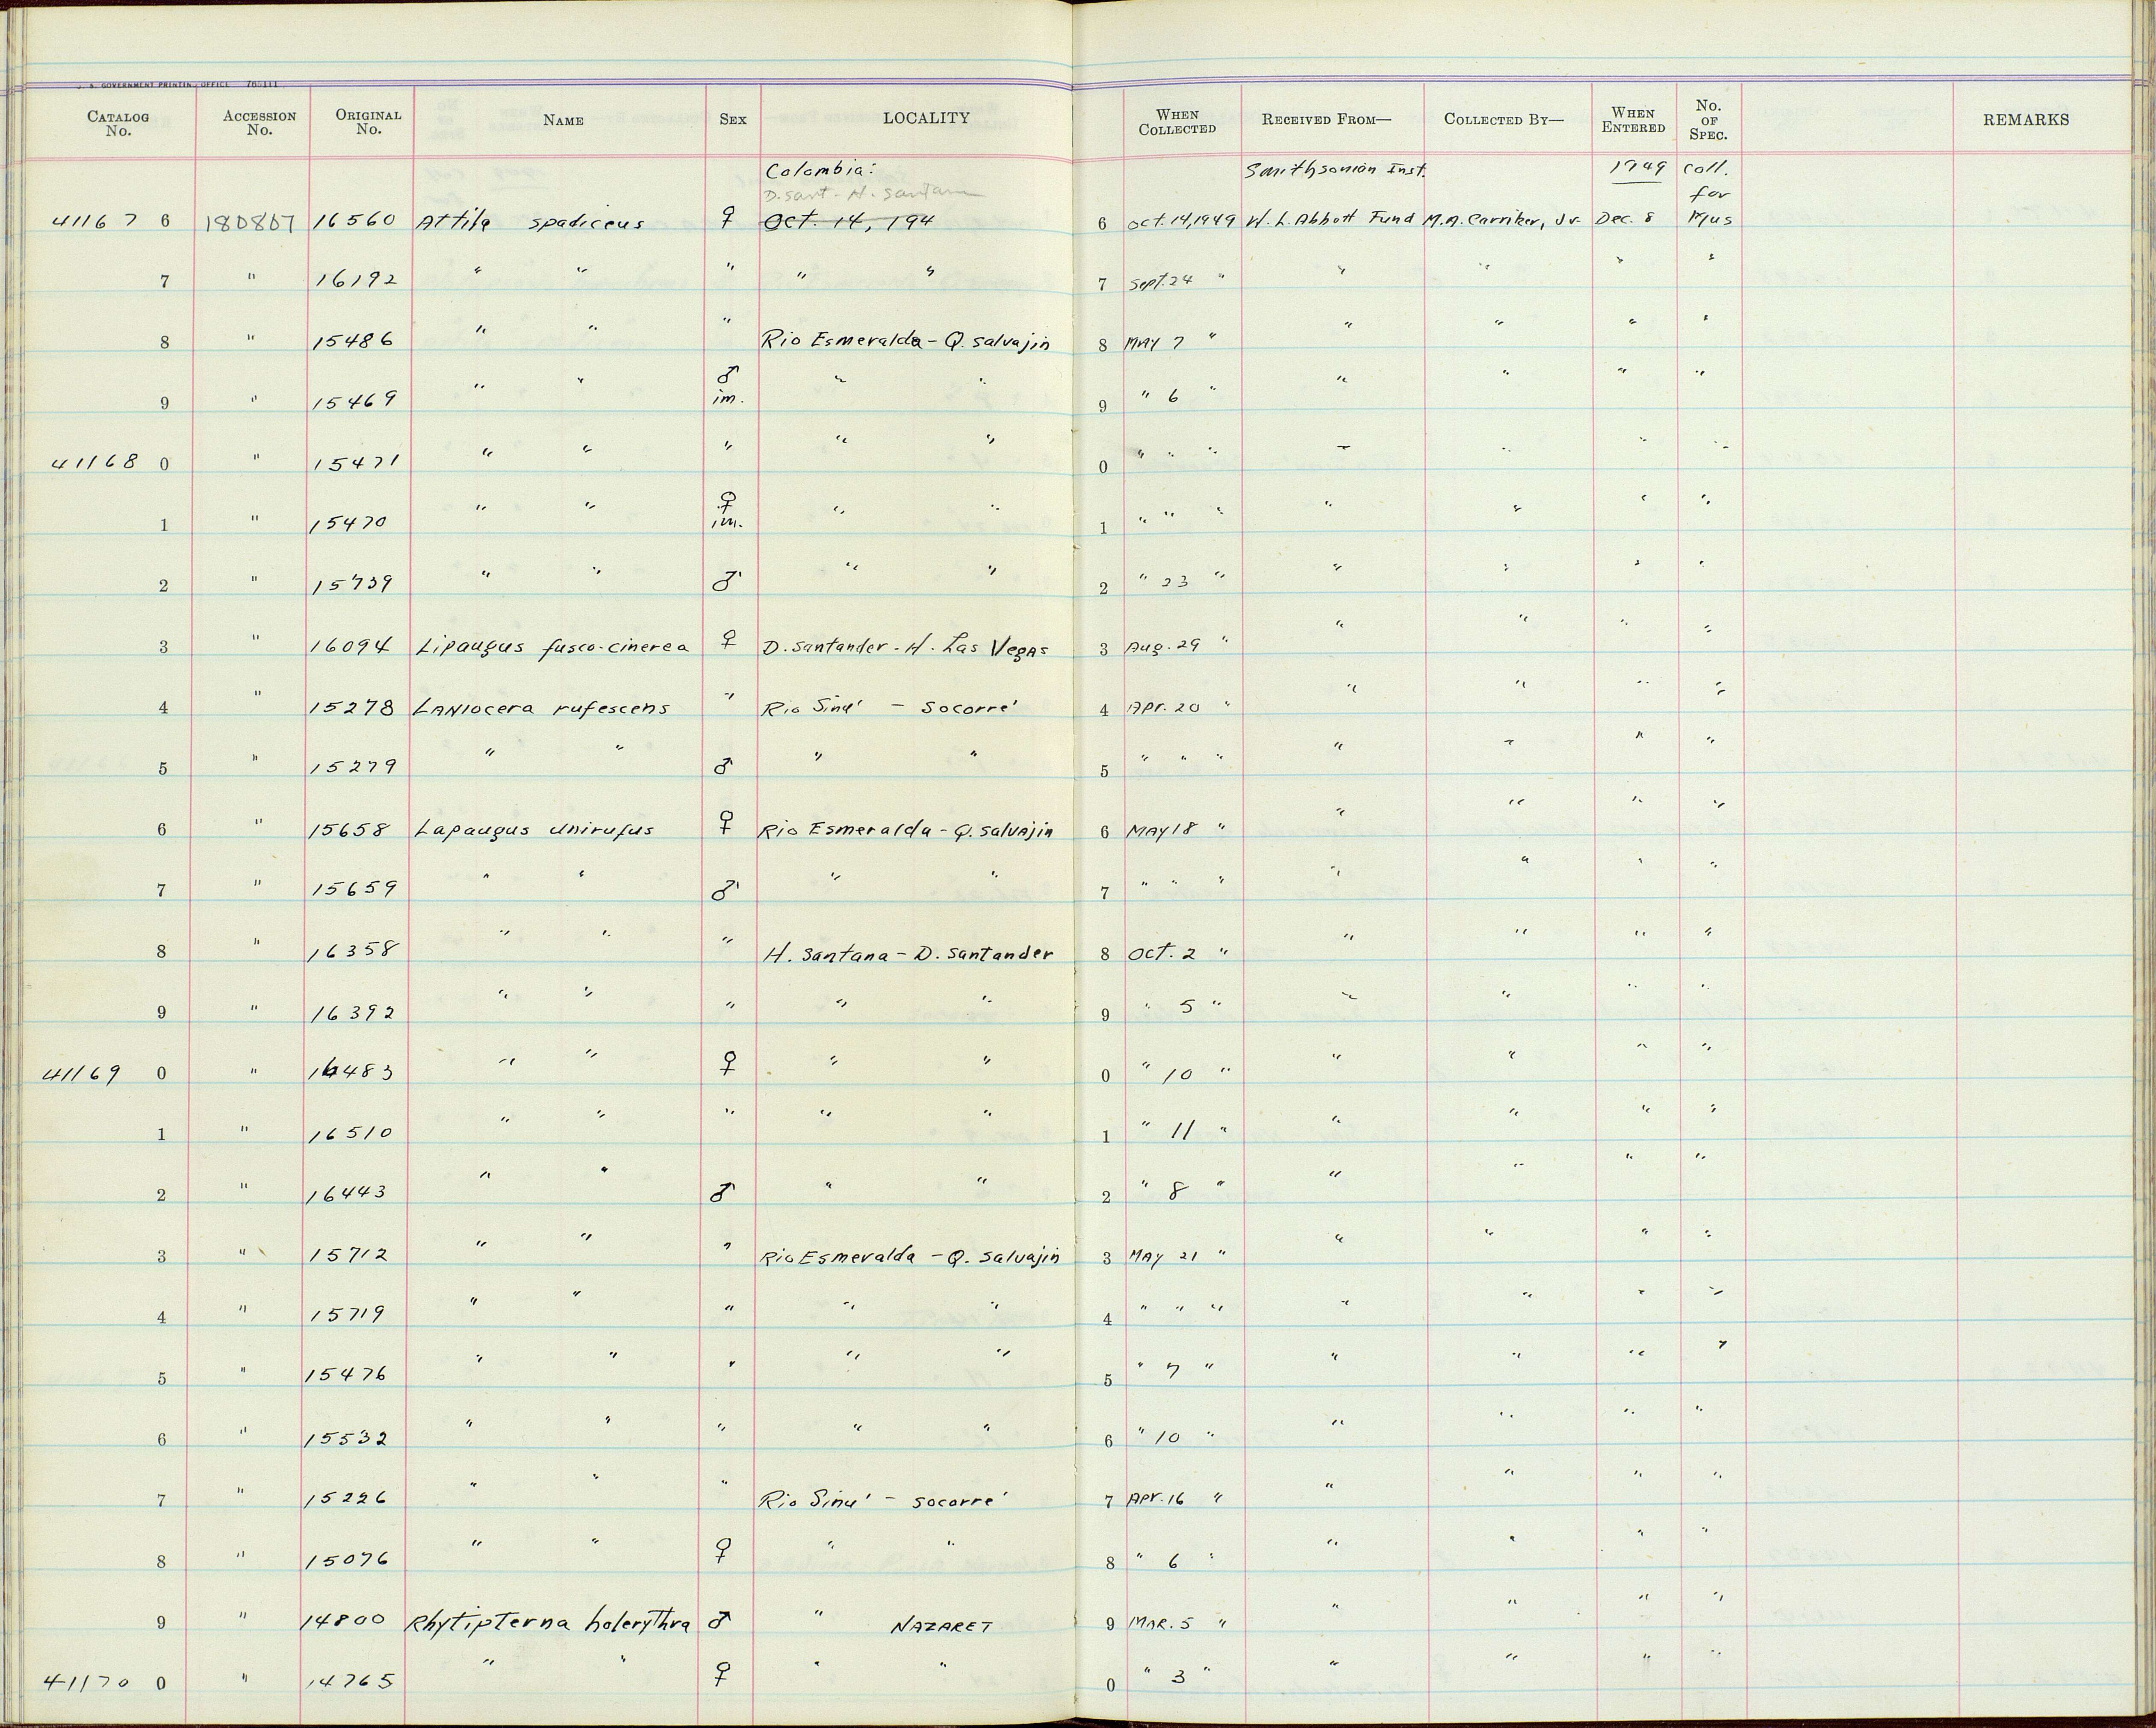 CATALOG No. ACCESSION No. ORIGINAL No. NAME SEX LOCALITY WHEN COLLECTED RECEIVED FROM— COLLECTED BY— WHEN ENTERED No. OF SPEC. REMARKS
Colombia: Smithsonian Inst. 1949 coll.
D. Sant. - H. Santana for
41167 6 180807 16560 Attila spadiceus ♀ Oct. 14, 194 6 Oct. 14, 1949 W. L. Abbott Fund M. A. Carriker, Jr. Dec. 8 Mus
7 " 16192 " " " " " 7 Sept. 24 " " " " "
8 " 15486 " " " Rio Esmeralda - Q. Salvajin 8 MAY 7 " " " " "
9 " 15469 " " ♂ im. " " 9 " 6 " " " " "
41168 0 " 15471 " " " " " 0 " " " " " " "
1 " 15470 " " ♀ im. " " 1 " " " " " " "
2 " 15739 " " ♂ " " 2 " 23 " " " " "
3 " 16094 Lipaugus fusco-cinerea ♀ D. Santander - H. Las Vegas 3 Aug. 29 " " " " "
4 " 15278 LANIOcera rufescens " Rio Sinu' - Socorre' 4 Apr. 20 " " " " "
5 " 15279 " " ♂ " " 5 " " " " " " "
6 " 15658 Lapaugus unirufus ♀ Rio Esmeralda - Q. Salvajin 6 MAY 18 " " " " "
7 " 15659 " " ♂ " " 7 " " " " " " "
8 " 16358 " " " H. Santana - D. Santander 8 Oct. 2 " " " " "
9 " 16392 " " " " " 9 " 5 " " " " "
41169 0 " 16483 " " ♀ " " 0 " 10 " " " " "
1 " 16510 " " " " " 1 " 11 " " " " "
2 " 16443 " " ♂ " " 2 " 8 " " " " "
3 " 15712 " " " Rio Esmeralda - Q. Salvajin 3 MAY 21 " " " " "
4 " 15719 " " " " " 4 " " " " " " "
5 " 15476 " " " " " 5 " 7 " " " " "
6 " 15532 " " " " " 6 " 10 " " " " "
7 " 15226 " " " Rio Sinu' - Socorre' 7 Apr. 16 " " " " "
8 " 15076 " " ♀ " " 8 " 6 " " " " "
9 " 14800 Rhytipterna holerythra ♂ " NAZARET 9 MAR. 5 " " " " "
41170 0 " 14765 " " ♀ " " 0 " 3 " " " " "